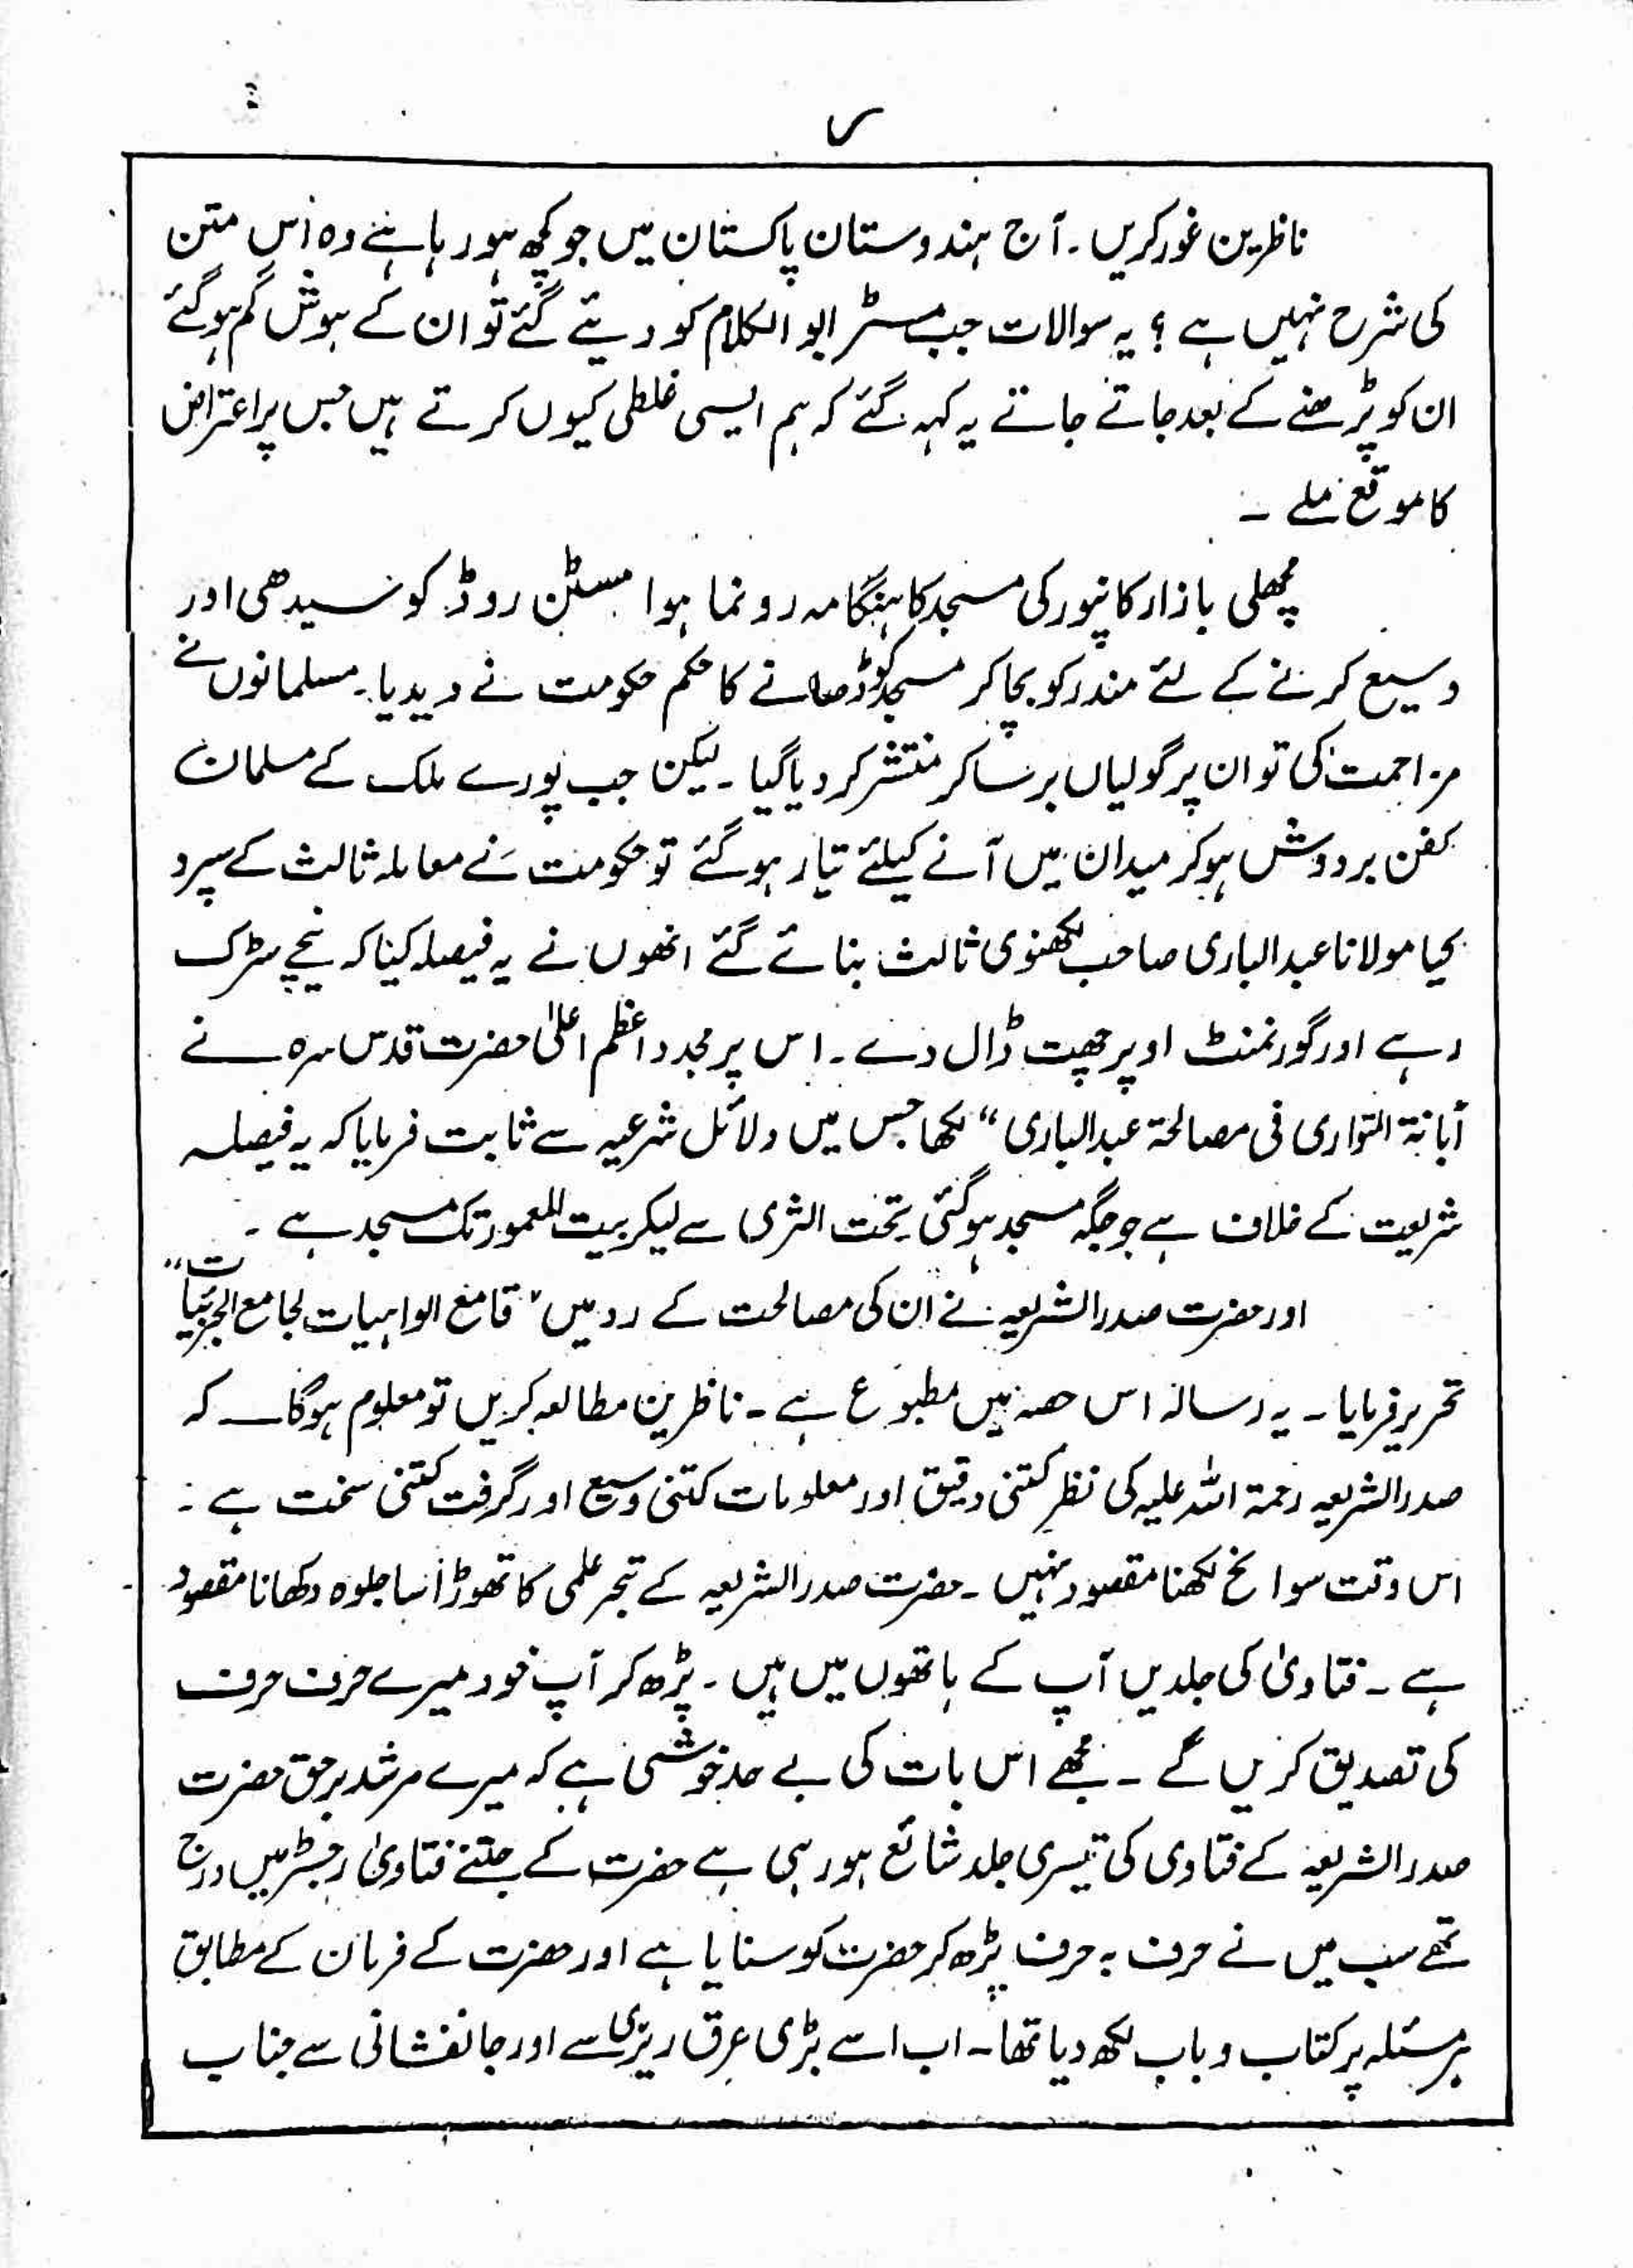 ناظرین غور کریں ۔ آج ہندوستان پاکستان میں جو کچھ ہو رہا ہے وہ اس متن
کی شرح نہیں ہے ؟ یہ سوالات جب مسٹر ابوالکلام کو دیئے گئے تو ان کے ہوش گم ہو گئے
ان کو پڑھنے کے بعد جاتے جاتے یہ کہہ گئے کہ ہم ایسی غلطی کیوں کرتے ہیں جس پر اعتراض
کا موقع ملے ۔
مچھلی بازار کانپور کی مسجد کا ہنگامہ رونما ہوا مسٹن روڈ کو سیدھی اور
وسیع کرنے کے لئے مندر کو بچا کر مسجد کو ڈھانے کا حکم حکومت نے دیدیا ۔ مسلمانوں نے
مزاحمت کی تو ان پر گولیاں برسا کر منتشر کر دیا گیا ۔ لیکن جب پورے ملک کے مسلمان
کفن بردوش ہو کر میدان میں آنے کیلئے تیار ہو گئے تو حکومت نے معاملہ ثالث کے سپرد
کیا مولانا عبدالباری صاحب لکھنوی ثالث بنائے گئے انھوں نے یہ فیصلہ کیا کہ نیچے سڑک
رہے اور گورنمنٹ اوپر چھت ڈال دے ۔ اس پر مجدد اعظم اعلیٰ حضرت قدس سرہ نے
أبانۃ التواری فی مصالحۃ عبدالباری“ لکھا جس میں دلائل شرعیہ سے ثابت فرمایا کہ یہ فیصلہ
شریعت کے خلاف ہے جو جگہ مسجد ہو گئی تحت الثری سے لیکر بیت المعمور تک مسجد ہے ۔
اور حضرت صدر الشریعہ نے ان کی مصالحت کے رد میں ”قامع الواہیات لجامع الجزئیات“
تحریر فرمایا ۔ یہ رسالہ اس حصہ میں مطبوع ہے ۔ ناظرین مطالعہ کریں تو معلوم ہوگا کہ
صدر الشریعہ رحمۃ اللہ علیہ کی نظر کتنی دقیق اور معلومات کتنی وسیع اور گرفت کتنی سخت ہے ۔
اس وقت سوانح لکھنا مقصود نہیں ۔ حضرت صدر الشریعہ کے تبحر علمی کا تھوڑا سا جلوہ دکھانا مقصود
ہے ۔ فتاویٰ کی جلدیں آپ کے ہاتھوں میں ہیں ۔ پڑھ کر آپ خود میرے حرف حرف
کی تصدیق کریں گے ۔ مجھے اس بات کی بے حد خوشی ہے کہ میرے مرشد برحق حضرت
صدر الشریعہ کے فتاوی کی تیسری جلد شائع ہو رہی ہے حضرت کے جتنے فتاویٰ رجسٹر میں درج
تھے سب میں نے حرف بہ حرف پڑھ کر حضرت کو سنایا ہے اور حضرت کے فرمان کے مطابق
ہر مسئلہ پر کتاب و باب لکھ دیا تھا ۔ اب اسے بڑی عرق ریزی سے اور جانفشانی سے جناب